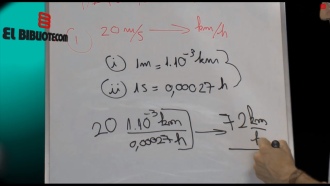 EL BIBUOTEcom
i) 20 m/s → km/h
(i) 1m = 1.10⁻³ km
(ii) 1s = 0,00027 h
20 1.10⁻³ km / 0,00027 h → 72 km